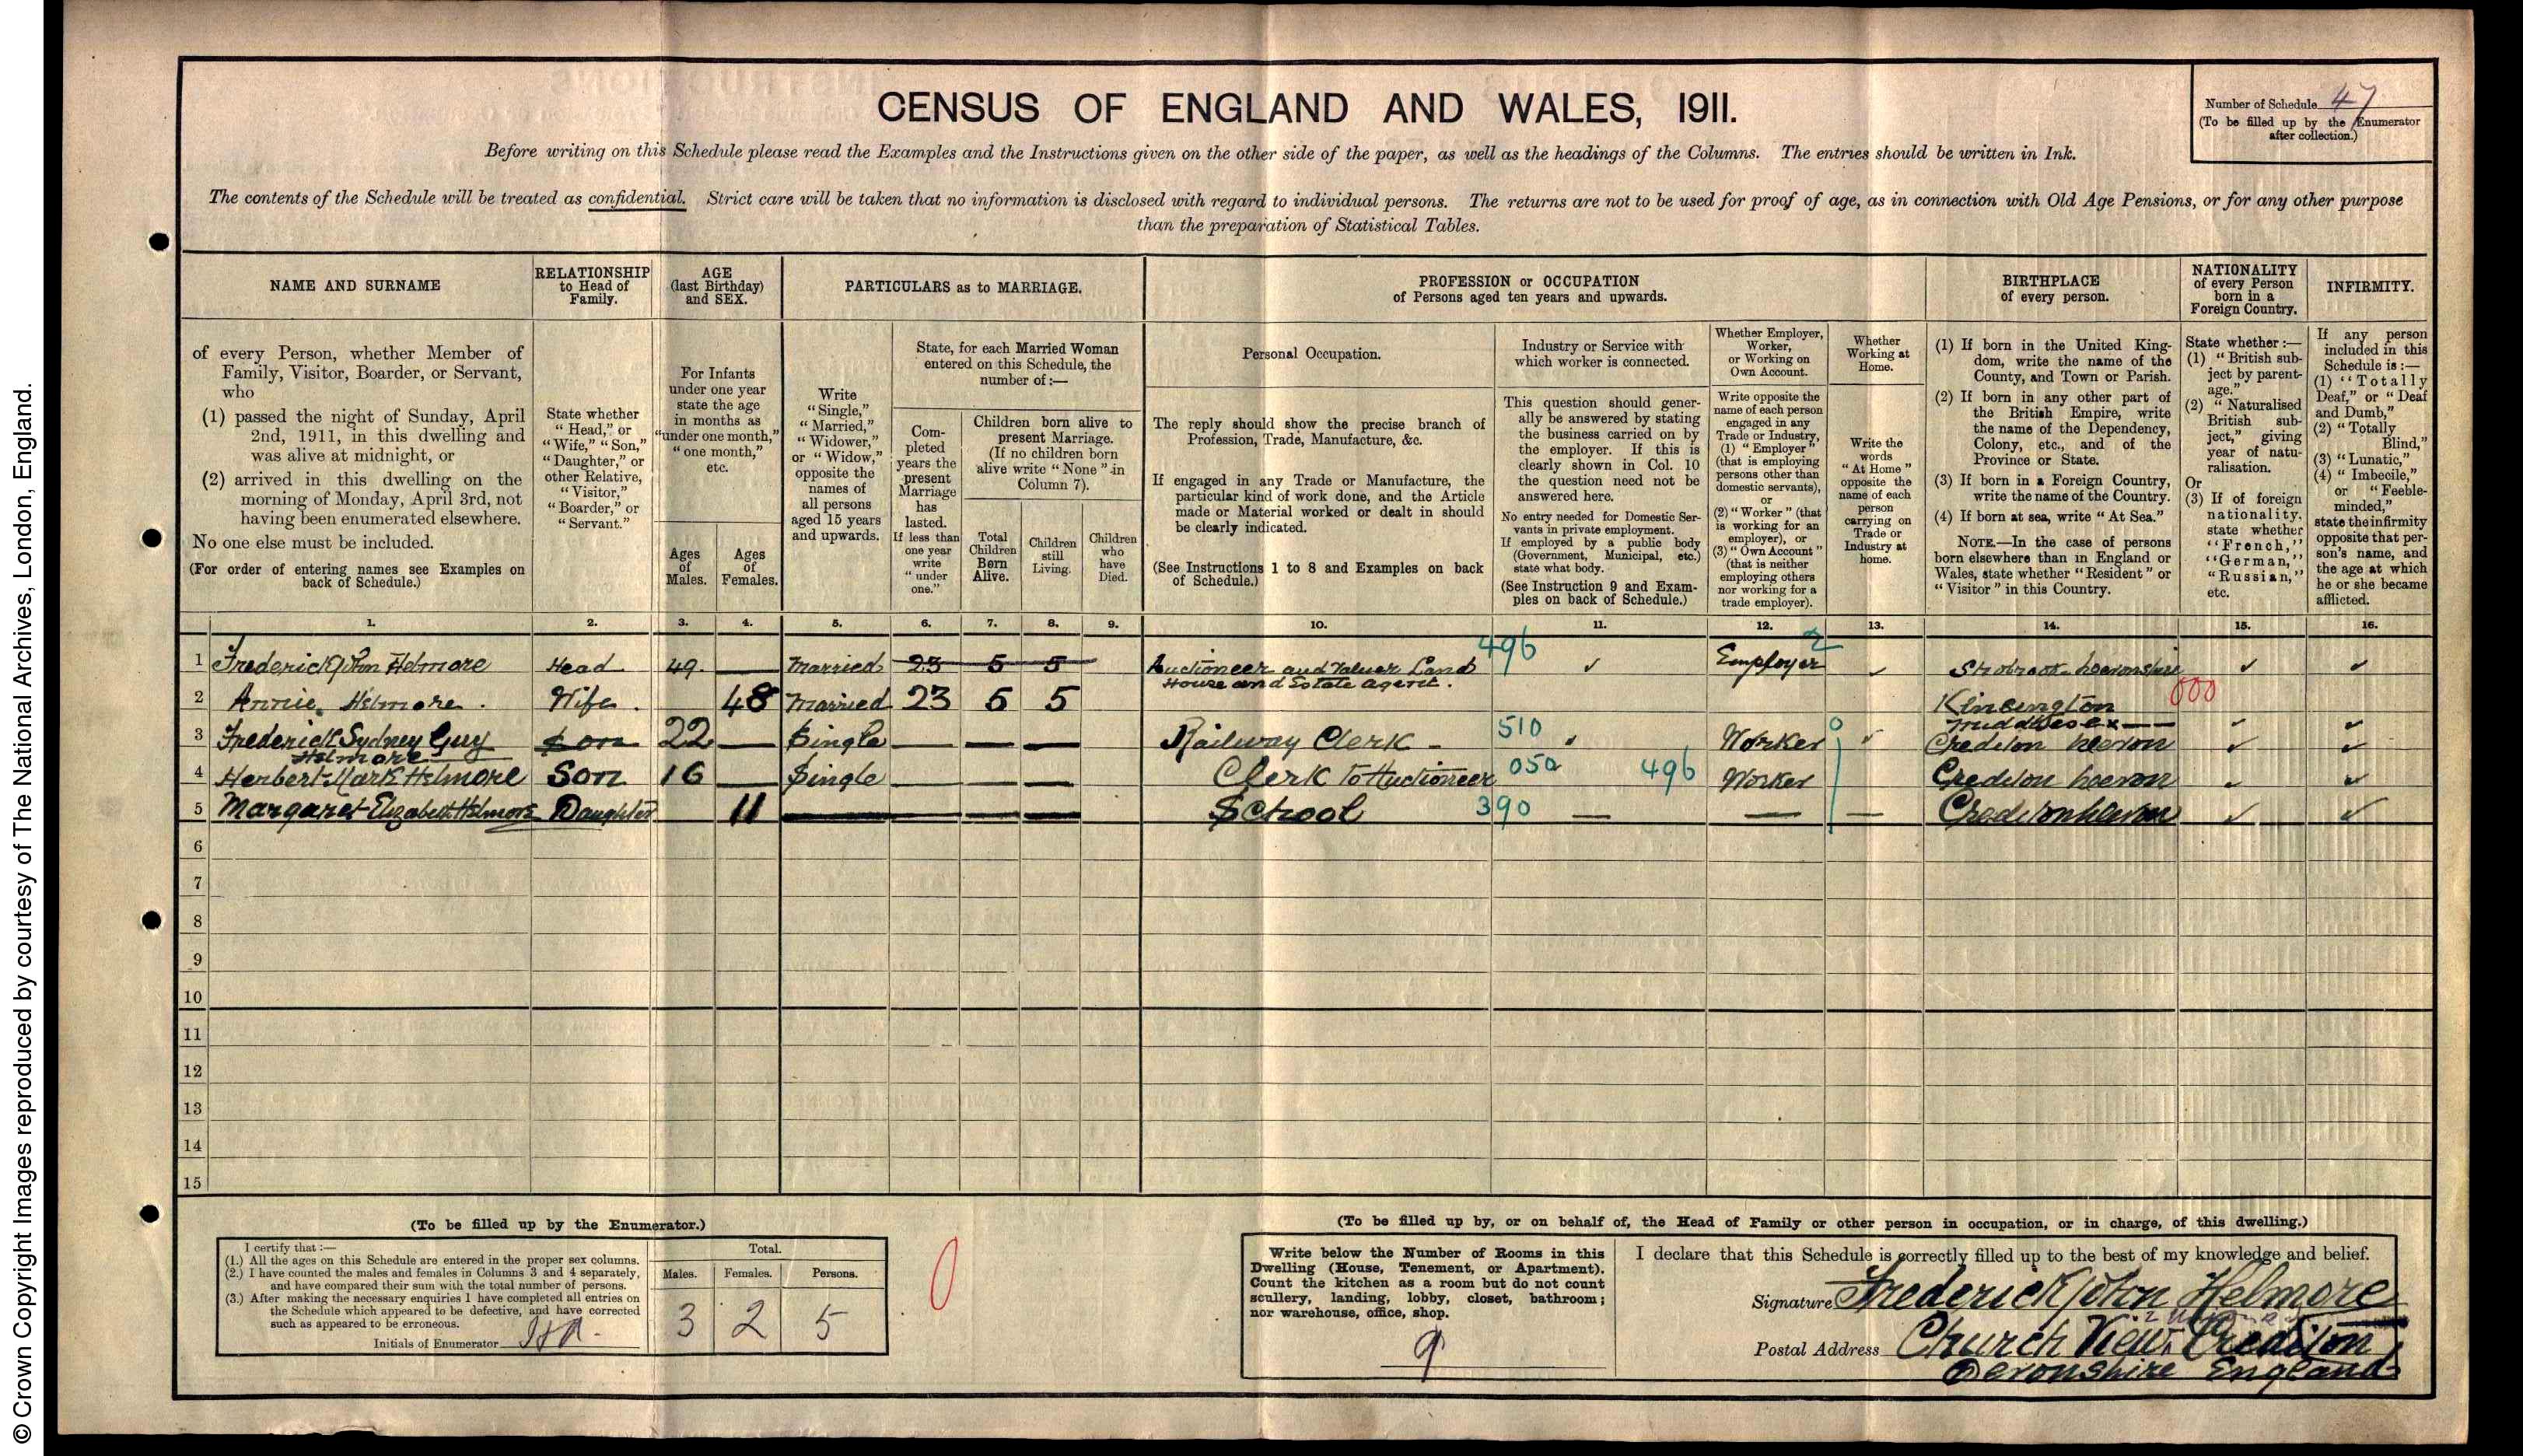 © Crown Copyright Images reproduced by courtesy of The National Archives, London, England.
CENSUS OF ENGLAND AND WALES, 1911.
Number of Schedule 47
(To be filled up by the Enumerator
after collection.)
Before writing on this Schedule please read the Examples and the Instructions given on the other side of the paper, as well as the headings of the Columns. The entries should be written in Ink.
The contents of the Schedule will be treated as confidential. Strict care will be taken that no information is disclosed with regard to individual persons. The returns are not to be used for proof of age, as in connection with Old Age Pensions, or for any other purpose
than the preparation of Statistical Tables.
NAME AND SURNAME
of every Person, whether Member of
Family, Visitor, Boarder, or Servant,
who
(1) passed the night of Sunday, April
2nd, 1911, in this dwelling and
was alive at midnight, or
(2) arrived in this dwelling on the
morning of Monday, April 3rd, not
having been enumerated elsewhere.
No one else must be included.
(For order of entering names see Examples on
back of Schedule.)
RELATIONSHIP
to Head of
Family.
State whether
"Head," or
"Wife," "Son,"
"Daughter," or
other Relative,
"Visitor,"
"Boarder," or
"Servant."
AGE
(last Birthday)
and SEX.
For Infants
under one year
state the age
in months as
"under one month,"
"one month,"
etc.
Ages
of
Males.
Ages
of
Females.
PARTICULARS as to MARRIAGE.
Write
"Single,"
"Married,"
"Widower,"
or "Widow,"
opposite the
names of
all persons
aged 15 years
and upwards.
State, for each Married Woman
entered on this Schedule, the
number of:—
Com-
pleted
years the
present
Marriage
has
lasted.
If less than
one year
write
"under
one."
Children born alive to
present Marriage.
(If no children born
alive write "None" in
Column 7).
Total
Children
Born
Alive.
Children
still
Living.
Children
who
have
Died.
PROFESSION or OCCUPATION
of Persons aged ten years and upwards.
Personal Occupation.
The reply should show the precise branch of
Profession, Trade, Manufacture, &c.
If engaged in any Trade or Manufacture, the
particular kind of work done, and the Article
made or Material worked or dealt in should
be clearly indicated.
(See Instructions 1 to 8 and Examples on back
of Schedule.)
Industry or Service with
which worker is connected.
This question should gener-
ally be answered by stating
the business carried on by
the employer. If this is
clearly shown in Col. 10
the question need not be
answered here.
No entry needed for Domestic Ser-
vants in private employment.
If employed by a public body
(Government, Municipal, etc.)
state what body.
(See Instruction 9 and Exam-
ples on back of Schedule.)
Whether Employer,
Worker,
or Working on
Own Account.
Write opposite the
name of each person
engaged in any
Trade or Industry,
(1) "Employer"
(that is employing
persons other than
domestic servants),
or
(2) "Worker" (that
is working for an
employer), or
(3) "Own Account"
(that is neither
employing others
nor working for a
trade employer).
Whether
Working at
Home.
Write the
words
"At Home"
opposite the
name of each
person
carrying on
Trade or
Industry at
home.
BIRTHPLACE
of every person.
(1) If born in the United King-
dom, write the name of the
County, and Town or Parish.
(2) If born in any other part of
the British Empire, write
the name of the Dependency,
Colony, etc., and of the
Province or State.
(3) If born in a Foreign Country,
write the name of the Country.
(4) If born at sea, write "At Sea."
NOTE.—In the case of persons
born elsewhere than in England or
Wales, state whether "Resident" or
"Visitor" in this Country.
NATIONALITY
of every Person
born in a
Foreign Country.
State whether:—
(1) "British sub-
ject by parent-
age."
(2) "Naturalised
British sub-
ject," giving
year of natu-
ralisation.
Or
(3) If of foreign
nationality,
state whether
"French,"
"German,"
"Russian,"
etc.
INFIRMITY.
If any person
included in this
Schedule is:—
(1) "Totally
Deaf," or "Deaf
and Dumb,"
(2) "Totally
Blind,"
(3) "Lunatic,"
(4) "Imbecile,"
or "Feeble-
minded,"
state the infirmity
opposite that per-
son's name, and
the age at which
he or she became
afflicted.
1. 2. 3. 4. 5. 6. 7. 8. 9. 10. 11. 12. 13. 14. 15. 16.
1 Frederick John Helmore Head 49. — Married 23 5 5 Auctioneer and Valuer Land 496 Employer 2 Devonshire
House and Estate Agent.
2 Annie Helmore. Wife. 48 Married 23 5 5 Kinsington 000
Middlesex
3 Frederick Sydney Guy Son 22 — Single — — — Railway Clerk 510 Worker 0 Crediton Devon
Helmore
4 Herbert Mark Helmore Son 16 — Single — — — Clerk To Auctioneer 050 496 Worker Crediton Devon
5 Margaret Elizabeth Helmore Daughter 11 — — — School 390 — — — Crediton Devon
6
7
8
9
10
11
12
13
14
15
(To be filled up by the Enumerator.)
I certify that:—
(1.) All the ages on this Schedule are entered in the proper sex columns.
(2.) I have counted the males and females in Columns 3 and 4 separately,
and have compared their sum with the total number of persons.
(3.) After making the necessary enquiries I have completed all entries on
the Schedule which appeared to be defective, and have corrected
such as appeared to be erroneous.
Initials of Enumerator
Total.
Males. Females. Persons.
3 2 5
0
(To be filled up by, or on behalf of, the Head of Family or other person in occupation, or in charge, of this dwelling.)
Write below the Number of Rooms in this
Dwelling (House, Tenement, or Apartment).
Count the kitchen as a room but do not count
scullery, landing, lobby, closet, bathroom;
nor warehouse, office, shop.
9
I declare that this Schedule is correctly filled up to the best of my knowledge and belief.
Signature Frederick John Helmore
Postal Address Church View Crediton
Devonshire England